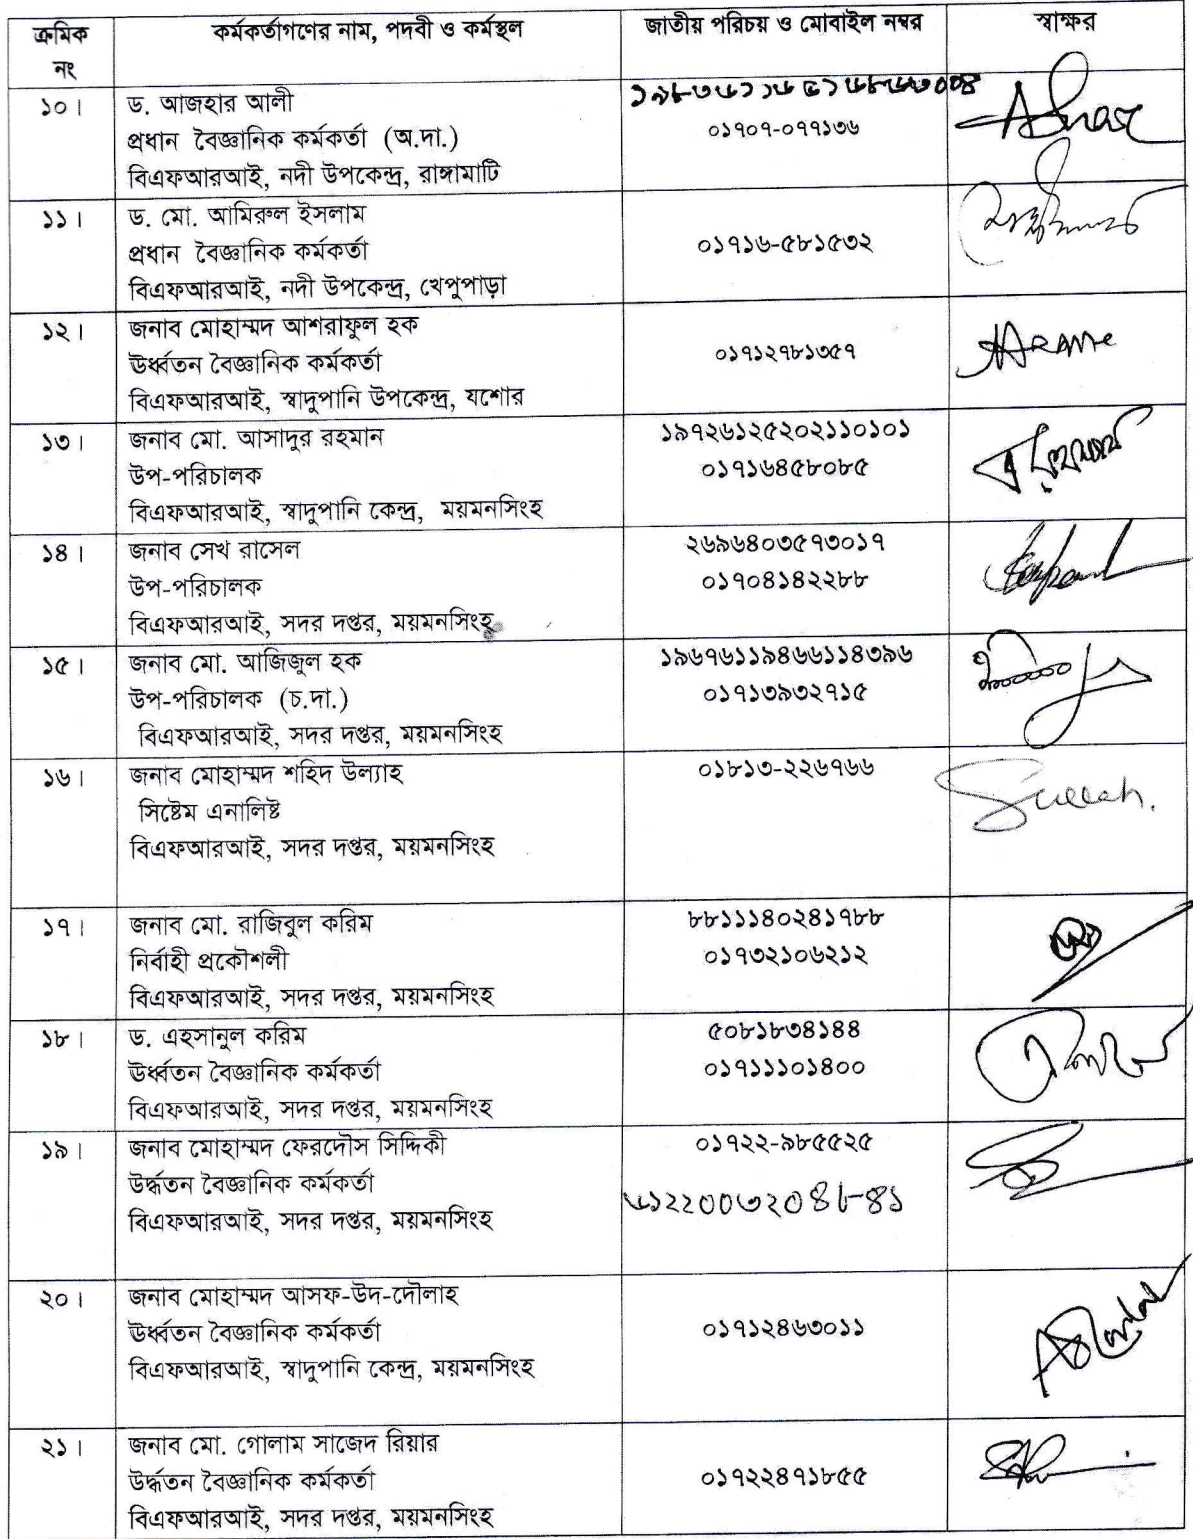 ক্রমিক নং
কর্মকর্তাগণের নাম, পদবী ও কর্মস্থল
জাতীয় পরিচয় ও মোবাইল নম্বর
স্বাক্ষর
১০।
ড. আজহার আলী
প্রধান বৈজ্ঞানিক কর্মকর্তা (অ.দা.)
বিএফআরআই, নদী উপকেন্দ্র, রাঙ্গামাটি
০১৭০৭-০৭৭১৩৬
১১।
ড. মো. আমিরুল ইসলাম
প্রধান বৈজ্ঞানিক কর্মকর্তা
বিএফআরআই, নদী উপকেন্দ্র, খেপুপাড়া
০১৭১৬-৫৮১৫৩২
১২।
জনাব মোহাম্মদ আশরাফুল হক
ঊর্ধ্বতন বৈজ্ঞানিক কর্মকর্তা
বিএফআরআই, স্বাদুপানি উপকেন্দ্র, যশোর
০১৭১২৭৮১৩৫৭
১৩।
জনাব মো. আসাদুর রহমান
উপ-পরিচালক
বিএফআরআই, স্বাদুপানি কেন্দ্র, ময়মনসিংহ
১৯৭২৬১২৫২০২১১০১০১
০১৭১৬৪৫৮০৮৫
১৪।
জনাব সেখ রাসেল
উপ-পরিচালক
বিএফআরআই, সদর দপ্তর, ময়মনসিংহ
২৬৯৬৪০৩৫৭৩০১৭
০১৭০৪১৪২২৮৮
১৫।
জনাব মো. আজিজুল হক
উপ-পরিচালক (চ.দা.)
বিএফআরআই, সদর দপ্তর, ময়মনসিংহ
১৯৬৭৬১১৯৪৬৬১১৪৩৯৬
০১৭১৩৯৩২৭১৫
১৬।
জনাব মোহাম্মদ শহিদ উল্যাহ
সিষ্টেম এনালিষ্ট
বিএফআরআই, সদর দপ্তর, ময়মনসিংহ
০১৮১৩-২২৬৭৬৬
১৭।
জনাব মো. রাজিবুল করিম
নির্বাহী প্রকৌশলী
বিএফআরআই, সদর দপ্তর, ময়মনসিংহ
৮৮১১১৪০২৪১৭৮৮
০১৭৩২১০৬২১২
১৮।
ড. এহসানুল করিম
ঊর্ধ্বতন বৈজ্ঞানিক কর্মকর্তা
বিএফআরআই, সদর দপ্তর, ময়মনসিংহ
৫০৮১৮৩৪১৪৪
০১৭১১১০১৪০০
১৯।
জনাব মোহাম্মদ ফেরদৌস সিদ্দিকী
উর্দ্ধতন বৈজ্ঞানিক কর্মকর্তা
বিএফআরআই, সদর দপ্তর, ময়মনসিংহ
০১৭২২-৯৮৫৫২৫
২০।
জনাব মোহাম্মদ আসফ-উদ-দৌলাহ
ঊর্ধ্বতন বৈজ্ঞানিক কর্মকর্তা
বিএফআরআই, স্বাদুপানি কেন্দ্র, ময়মনসিংহ
০১৭১২৪৬৩০১১
২১।
জনাব মো. গোলাম সাজেদ রিয়ার
উর্দ্ধতন বৈজ্ঞানিক কর্মকর্তা
বিএফআরআই, সদর দপ্তর, ময়মনসিংহ
০১৭২২৪৭১৮৫৫